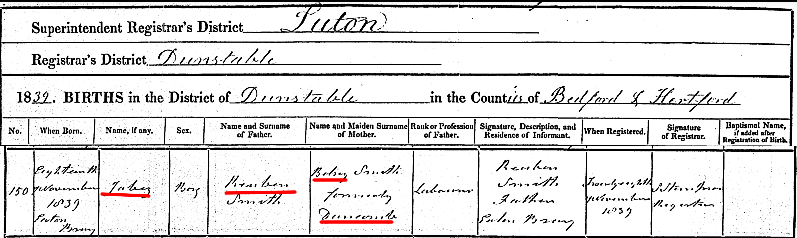 Superintendent Registrar's District Luton
Registrar's District Dunstable
1839. BIRTHS in the District of Dunstable in the Counties of Bedford & Hertford
No. When Born. Name, if any. Sex. Name and Surname of Father. Name and Maiden Surname of Mother. Rank or Profession of Father. Signature, Description, and Residence of Informant. When Registered. Signature of Registrar. Baptismal Name, if added after Registration of Birth.
150 Eighteenth November 1839 Eaton Bray Jabez Boy Reuben Smith Betsy Smith formerly Duncomb Labourer Reuben Smith Father Eaton Bray Twenty eighth November 1839 Registrar